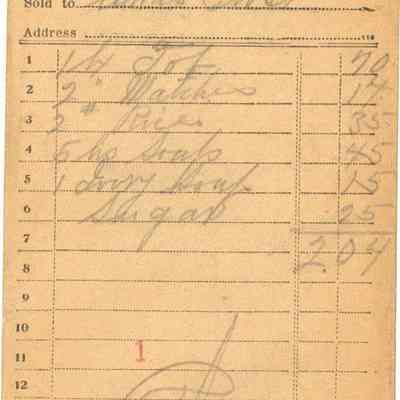 Sold to
Address
1 1 lb Tob 70
2 2 " Matches 14
3 3 " Rice 35
4 5 lbs Soap 45
5 1 Ivory Soap 15
6 Sugar 25
7 2.04
8
9
10
11 1
12